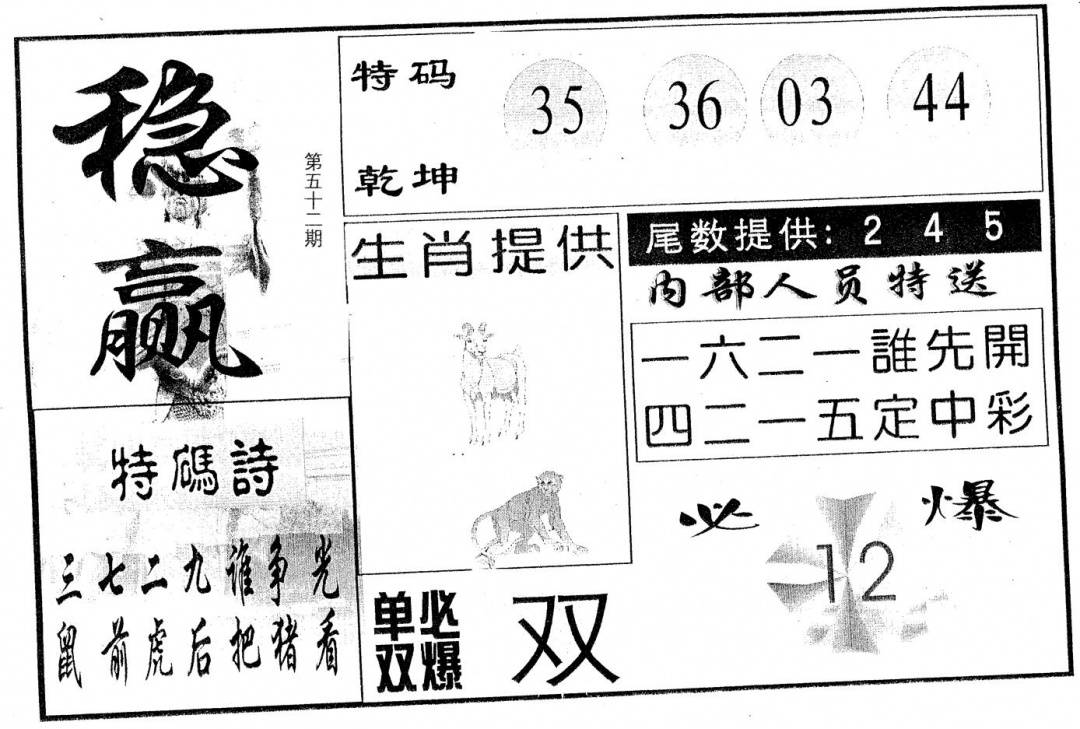 稳
赢
第五十二期
特码
35 36 03 44
乾坤
生肖提供
尾数提供: 2 4 5
内部人员特送
一六二一誰先開
四二一五定中彩
特碼詩
三七二九谁争光
鼠前虎后把猪看
必爆
12
单双
必爆
双